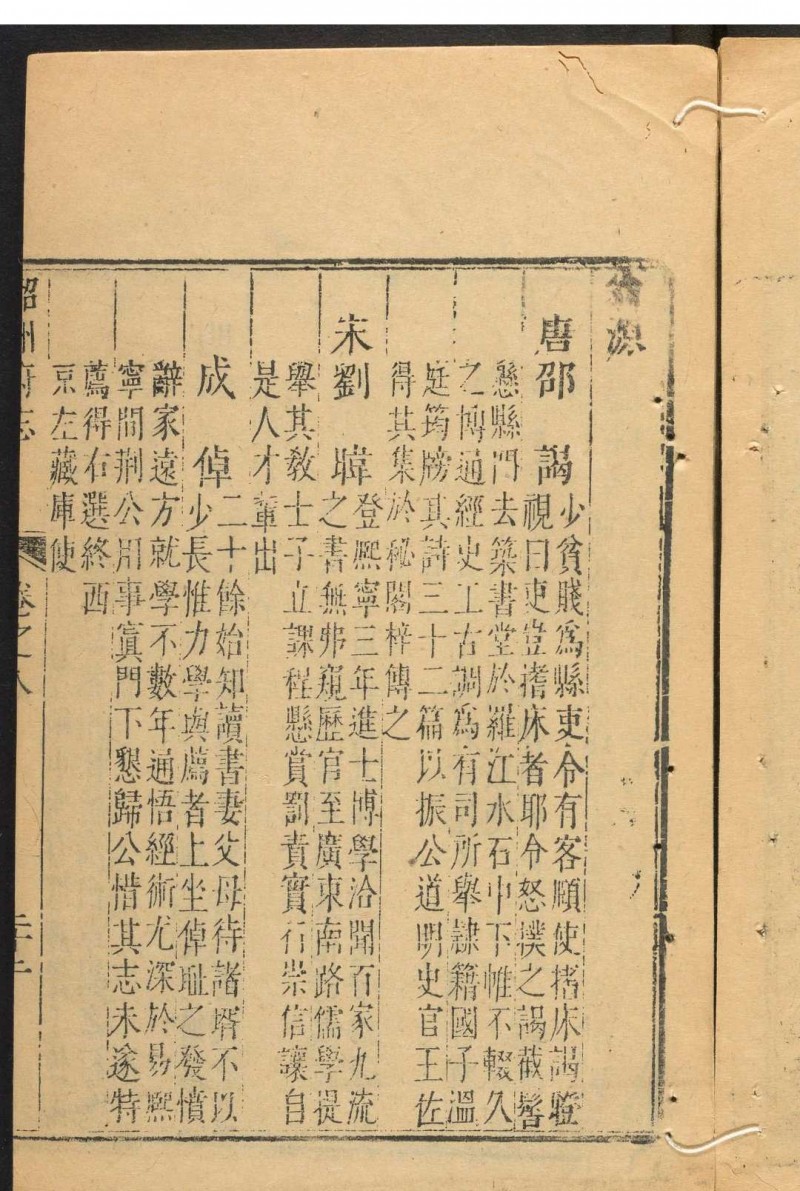 翁源
唐邵 謁 少貧賤爲縣吏令有客顧使搘床謁瞪
視曰吏豈搘床者耶令怒撲之謁截髻
懸縣門去築書堂於羅江水石中下帷不輟久
之博通經史工古調爲有司所舉隸籍國子溫
庭筠牓其詩三十二篇以振公道明史官王佐
得其集於秘閣梓傳之
宋劉 暐 登熙寧三年進士博學洽聞百家九流
之書無弗窺歷官至廣東南路儒學提
舉其教士子立課程懸賞罰責實行崇信讓自
是人才輩出
成 倬 二十餘始知讀書妻父母待諸壻不以
少長惟力學與薦者上坐倬耻之發憤
辭家遠方就學不數年通悟經術尤深於易熙
寧間荆公用事寘門下懇歸公惜其志未遂特
薦得右選終西
京左藏庫使
韶州府志 卷之八